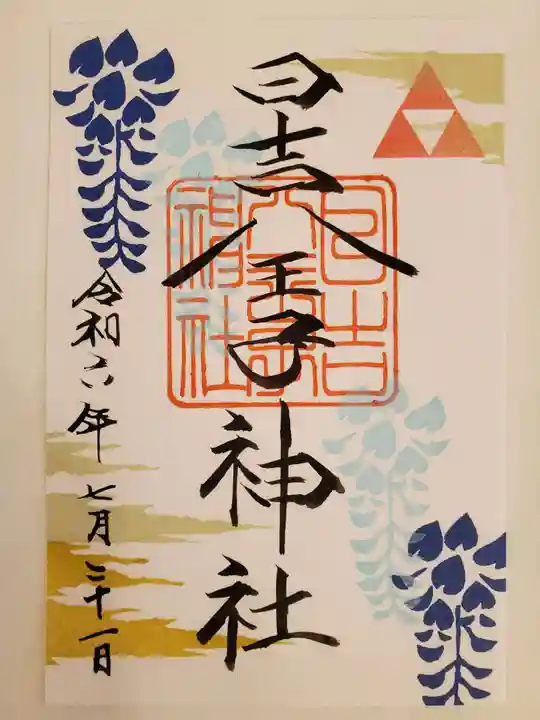 日吉八王子神社
日吉
八王子
神社
令和六年七月二十一日